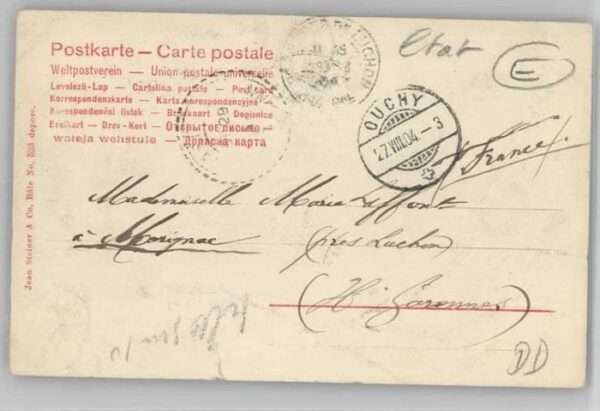 Postkarte — Carte postale
Weltpostverein — Union postale universelle
Levelező-Lap — Cartolina postale — Post card
Korrespondenzkarte — Karta korespondencyjna
Korespondenční lístek — Brevkaart — Dopisnice
Brev-Kort — Открытое письмо
DE LUCHON
29
Etat
E
OUCHY
27.VIII.04–3
France
Mademoiselle Marie Laffont
à Marignac
(près Luchon)
(Hte Garonne)
DD
Jean Steiner & Co, Bâle No. 353 depose.